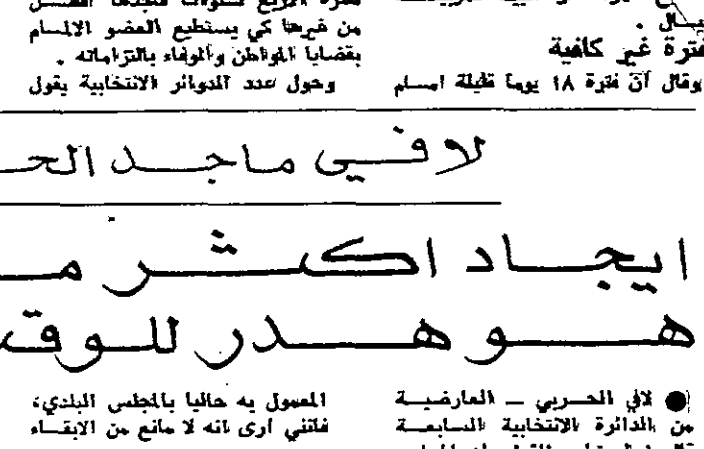 يـال .
فترة غير كافية
وقال أن فترة ١٨ يوما قليلة امـام
من غيرها كي يستطيع العضو الالمـام
بقضايا المواطن والوفاء بالتزاماته .
وحول عدد الدوائر الانتخابية يقول
لافـــي ماجـــد الحـ
ايجـــاد اكـــثـــر مـ
هـــو هـــدر للــوقـ
● لافي الحـربي ــ العارضيـة
من الدائرة الانتخابية السـابعـة
المعمول به حاليا بالمجلس البلدي،
فانني أرى انه لا مانع من الابقـاء